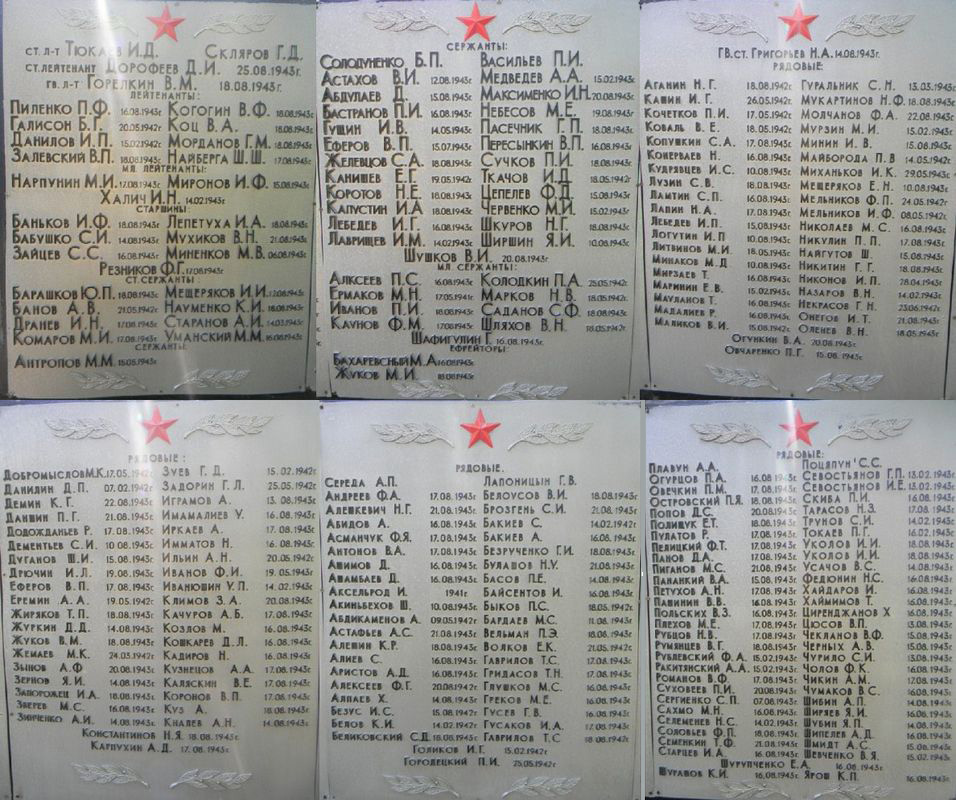 СТ. Л-Т ТЮКАЕВ И.Д. СКЛЯРОВ Г.Д.
СТ. ЛЕЙТЕНАНТ ДОРОФЕЕВ Д.И. 25.08.1943г.
ГВ. Л-Т ГОРЕЛКИН В.М. 18.08.1943г.
ЛЕЙТЕНАНТЫ:
ПИЛЕНКО П.Ф. 16.08.1943г. КОГОГИН В.Ф. 18.08.1943г.
ГАЛИСОН Б.Г. 20.05.1942г. КОЦ В.А. 18.08.1943г.
ДАНИЛОВ И.П. 15.02.1942г. МОРДАНОВ Г.М. 18.08.1943г.
ЗАЛЕВСКИЙ В.П. 18.08.1943г. НАЙБЕРГА Ш.Ш. 17.08.1943г.
МЛ. ЛЕЙТЕНАНТЫ:
НАРПУНИН М.И. 17.08.1943г. МИРОНОВ И.Ф. 15.08.1943г.
ХАЛИЧ И.Н. 14.02.1943г.
СТАРШИНЫ:
БАНЬКОВ И.Ф. 18.08.1943г. ЛЕПЕТУХА И.А. 18.08.1943г.
БАБУШКО С.И. 14.08.1943г. МУХИКОВ В.Н. 21.08.1943г.
ЗАЙЦЕВ С.С. 16.08.1943г. МИНЕНКОВ М.В. 06.08.1943г.
РЕЗНИКОВ Ф.Г. 17.08.1943г.
СТ. СЕРЖАНТЫ:
БАРАШКОВ Ю.П. 18.08.1943г. МЕЩЕРЯКОВ И.И. 12.08.1943г.
БАНОВ А.В. 21.05.1942г. НАУМЕНКО К.И. 18.08.1943г.
ДРАНЕВ И.Н. 17.08.1943г. СТАРАНОВ А.И. 14.03.1943г.
КОМАРОВ М.И. 17.08.1943г. УМАНСКИЙ М.М. 16.08.1943г.
СЕРЖАНТЫ:
АНТРОПОВ М.М. 15.08.1943г.
СЕРЖАНТЫ:
СОЛОДУНЕНКО Б.П. ВАСИЛЬЕВ П.И.
АСТАХОВ В.И. 12.08.1943г. МЕДВЕДЕВ А.А. 15.02.1943г.
АБДУЛАЕВ Д. 15.08.1943г. МАКСИМЕНКО И.Н. 20.08.1943г.
БАСТРАНОВ П.И. 16.08.1943г. НЕБЕСОВ М.Е. 19.08.1943г.
ГУЩИН И.В. 14.05.1943г. ПАСЕЧНИК Г.П. 18.08.1943г.
ЕФЕРОВ В.П. 15.07.1943г. ПЕРЕСЫНКИН В.П. 16.08.1943г.
ЖЕЛЕВЦОВ С.А. 18.08.1943г. СУЧКОВ П.И. 18.08.1943г.
КАНИШЕВ Е.Г. 19.05.1942г. ТКАЧОВ И.Д. 18.05.1942г.
КОРОТОВ Н.Е. 18.08.1943г. ЦЕПЕЛЕВ Ф.Д. 15.08.1943г.
КАПУСТИН И.А. 18.08.1943г. ЧЕРВЕНКО М.И. 15.02.1943г.
ЛЕБЕДЕВ И.Г. 16.08.1943г. ШКУРОВ Н.Г. 18.08.1943г.
ЛАВРИЩЕВ И.М. 14.02.1943г. ШИРШИН Я.И. 10.08.1943г.
ШУШКОВ В.И. 20.08.1943г.
МЛ. СЕРЖАНТЫ:
АЛКСЕЕВ П.С. 16.08.1943г. КОЛОДКИН П.А. 25.05.1942г.
ЕРМАКОВ М.Н. 17.05.1941г. МАРКОВ Н.В. 18.05.1942г.
ИВАНОВ П.И. 18.08.1943г. САДАНОВ С.Ф. 18.08.1943г.
КАУНОВ Ф.М. 17.08.1943г. ШЛЯХОВ В.Н. 18.05.1942г.
ШАФИГУЛИН Г. 16.08.1943г.
ЕФРЕЙТОРЫ:
БАХАРЕВСНЫЙ М.А. 16.08.1943г.
ЖУКОВ М.И. 18.08.1943г.
ГВ.СТ. ГРИГОРЬЕВ Н.А. 14.08.1943г.
РЯДОВЫЕ:
АГАНИН Н.Г. 18.08.1942г. ГУРАЛЬНИК С.Н. 13.03.1943г.
КАШИН И.Г. 26.05.1942г. МУКАРТИНОВ Н.Ф. 18.08.1943г.
КОЧЕТКОВ П.И. 17.05.1942г. МОЛЧАНОВ Ф.А. 22.08.1943г.
КОВАЛЬ В.Е. 18.05.1942г. МУРЗИН М.И. 15.02.1943г.
КОПУШКИН С.А. 17.08.1943г. МИНИН И.В. 15.08.1943г.
КОНЕРВАЕВ Н. 16.08.1943г. МАЙБОРОДА П.В 14.05.1942г.
КУДРЯВЦЕВ И.С. 10.08.1943г. МИХАНЬКОВ И.К. 29.05.1943г.
ЛУЗИН С.В. 18.08.1943г. МЕЩЕРЯКОВ Е.Н. 10.08.1943г.
ЛАМТИН С.П. 16.08.1943г. МЕЛЬНИКОВ Ф.П. 24.05.1942г.
ЛАПИН Н.А. 17.08.1943г. МЕЛЬНИКОВ И.Ф. 08.05.1942г.
ЛЕБЕДЕВ И.П. 15.08.1943г. НИКОЛАЕВ М.С. 16.08.1943г.
ЛОГУТИН И.П 10.08.1943г. НИКУЛИН П.П. 17.08.1943г.
ЛИТВИНОВ М.И. 18.08.1943г. НАЙГУТОВ Ш. 15.08.1943г.
МИНАКОВ М.Д. 10.08.1943г. НИКИТИН Г.Г. 18.08.1943г.
МИРЗАЕВ Т. 16.08.1943г. НИКОНОВ И.П. 28.04.1943г.
МАРИНИН Е.В. 15.02.1943г. НАЗАРОВ В.Н. 14.02.1943г.
МАУЛАНОВ Т. 16.08.1943г. НЕКРАСОВ Г.Н. 23.06.1942г.
МАДАЛИЕВ Р. 16.08.1943г. ОНЕГОВ И.Т. 21.08.1943г.
МАЛИКОВ В.И. 15.08.1942г. ОЛЕНЕВ В.Н. 18.05.1943г.
ОГУНКИН В.А. 20.08.1943г.
ОВЧАРЕНКО П.Г. 15.08.1943г.
РЯДОВЫЕ:
ДОБРОМЫСЛОВ М.К. 17.05.1942г. ЗУЕВ Г.Д. 15.02.1942г.
ДАНИЛИН Д.П. 07.02.1942г. ЗАДОРИН Г.Л. 25.05.1942г.
ДЕМИН К.Г. 22.08.1943г. ИГРАМОВ А. 13.08.1943г.
ДАНШИН П.Г. 21.08.1943г. ИМАМАЛИЕВ У. 16.08.1943г.
ДОДОЖДАНЬЕВ Р. 17.08.1943г. ИРКАЕВ А. 17.08.1943г.
ДЕМЕНТЬЕВ С.И. 10.08.1943г. ИММАТОВ Н. 16.08.1943г.
ДУГАНОВ Ш.И. 15.08.1943г. ИЛЬИН А.Н. 20.05.1942г.
ДРЮЧИН И.Л. 19.08.1943г. ИВАНОВ Ф.И. 19.05.1943г.
ЕФЕРОВ В.П. 17.08.1943г. ИВАНЮШИН У.П. 14.02.1943г.
ЕРЕМИН А.А. 19.05.1942г. КЛИМОВ З.А. 20.08.1943г.
ЖИРЯКОВ Т.П. 18.08.1943г. КАЧУРОВ А.В. 17.08.1943г.
ЖУРКИН Д.Д. 14.08.1943г. КОЗЛОВ М. 16.08.1943г.
ЖУКОВ В.М. 18.08.1943г. КОШКАРЕВ Д.Л. 16.08.1943г.
ЖЕМАЕВ М.К. 24.03.1942г. КАДИРОВ Н. 16.08.1943г.
ЗЫНОВ А.Ф 20.08.1943г. КУЗНЕЦОВ А.А. 17.08.1943г.
ЗЕРНОВ Я.И. 14.08.1943г. КАЛЯСКИН В.Е. 17.08.1943г.
ЗАПОРОЖЕЦ И.А. 18.08.1943г. КОРОНОВ В.П. 17.08.1943г.
ЗВЕРЕВ М.С. 16.08.1943г. КУЗ А. 18.08.1943г.
ЗИНЧЕНКО А.И. 14.08.1943г. КНАЛЕВ А.Н. 14.08.1943г.
КОНСТАНТИНОВ Н.Я. 18.08.1943г.
КАРПУХИН А.Д. 17.08.1943г.
РЯДОВЫЕ.
СЕРЕДА А.П. ЛАПОНИЦЫН Г.В.
АНДРЕЕВ Ф.А. 17.08.1943г. БЕЛОУСОВ В.И. 18.08.1943г.
АЛЕШКЕВИЧ Н.Г. 21.08.1943г. БРОЗГЕНЬ С.И. 21.08.1943г.
АБИДОВ А. 16.08.1943г. БАКИЕВ С. 14.02.1942г.
АСМАНЧУК Ф.Я. 17.08.1943г. БАКИЕВ А. 16.08.1943г.
АНТОНОВ В.А. 17.08.1943г. БЕЗРУЧЕНКО Г.И. 18.08.1943г.
АШИМОВ Д. 16.08.1943г. БУЛАШОВ Н.У. 21.08.1943г.
АШАМБАЕВ Д. 16.08.1943г. БАСОВ П.Е. 14.08.1943г.
АКСЕЛЬРОД И. 1941г. БАЙСЕНТОВ И. 16.08.1943г.
АКИНЬБЕХОВ Ш. 10.08.1943г. БЫКОВ П.С. 18.05.1942г.
АБДИКАМЕНОВ А. 09.05.1942г. БАРДАЕВ М.С. 11.08.1943г.
АСТАФЬЕВ А.С. 21.08.1943г. ВЕЛЬМАН П.Э. 18.08.1943г.
АЛЕШИН К.Р. 18.08.1943г. ВОЛКОВ Е.К. 21.05.1942г.
АЛИЕВ С. 16.08.1943г. ГАВРИЛОВ Т.С. 17.08.1943г.
АРИСТОВ А.Д. 16.08.1943г. ГРИДАСОВ Т.Н. 17.08.1943г.
АЛЕКСЕЕВ Ф.Г. 20.08.1942г. ГЛУШКОВ М.С. 16.08.1943г.
АЛПАЕВ Х. 14.08.1943г. ГРЕКОВ М.Е. 16.08.1943г.
БЕЗУС И.С. 15.08.1942г. ГУСЕВ Г.В. 16.08.1943г.
БЕЛОВ К.И. 14.02.1942г. ГУСАКОВ И.А. 17.08.1943г.
БЕЛИКОВСКИЙ С.Д. 18.08.1943г. ГАВРИЛОВ Т.С 18.08.1942г.
ГОЛИКОВ И.Г. 15.02.1942г.
ГОРОДЕЦКИЙ П.И. 25.05.1942г.
РЯДОВЫЕ:
ПЛАВУН А.А. ПОЦЯПУН С.С.
ОГУРЦОВ П.А. 16.08.1943г. СЕВОСТЬЯНОВ Г.П. 13.02.1943г.
ОВЕЧКИН П.М. 17.08.1943г. СЕВОСТЬЯНОВ И.Е. 13.02.1943г.
ОСТРОВСКИЙ П.Я. 18.08.1943г. СКИБА П.И. 16.08.1943г.
ПОПОВ Д.С. 20.08.1943г. ТАРАСОВ Н.З. 17.08.1943г.
ПОЛИЩУК Е.Т. 18.08.1943г. ТРУНОВ С.И. 14.02.1943г.
ПУЛАТОВ Р. 17.08.1943г. ТОКАЕВ П.Г. 16.02.1943г.
ПЕЛИЦКИЙ Ф.Т. 17.08.1943г. УКОЛОВ И.И. 18.08.1943г.
ПАНОВ Д.А. 17.08.1943г. УКОЛОВ И.И. 18.08.1943г.
ПИГАНОВ М.С. 21.08.1943г. УСАЧОВ В.С. 14.08.1943г.
ПАНАНКИЙ В.А. 15.08.1943г. ФЕДЮНИН Н.С. 16.08.1943г.
ПЕТУХОВ А.Н 17.08.1943г. ХАЙДАРОВ И. 16.08.1943г.
ПАШИНИН В.В. 16.08.1943г. ХАЙМИМОВ Т. 16.08.1943г.
ПОЛЬСКИХ В.З. 16.08.1943г. ЦИРЕНДЖАНОВ Х 16.08.1943г.
ПЛЕХОВ М.Е. 17.08.1943г. ЦЮСОВ В.П. 13.08.1943г.
РУБЦОВ Н.В. 17.08.1943г. ЧЕКЛАНОВ В.Ф. 15.08.1943г.
РУМЯНЦЕВ В.Г. 18.08.1943г. ЧЕРНЫХ А.В. 15.08.1943г.
РУБЛЕВСКИЙ Ф.А. 15.02.1943г. ЧУРИЛО С.И. 13.08.1943г.
РАКИТЯНСКИЙ А.А. 15.02.1943г. ЧОЛОВ Ф.К. 16.08.1943г.
РОМАНОВ В.Ф. 17.08.1943г. ЧИКИН А.М. 17.08.1943г.
СУХОВЕЕВ П.И. 20.08.1943г. ЧУМАКОВ В.С. 16.08.1943г.
СЕРГИЕНКО С.П. 07.08.1943г. ШИБИН А.П. 14.08.1943г.
САХМО М.Н. 16.08.1943г. ШИРЯЕВ Я.И. 16.08.1943г.
СЕЛЕМЕНЕВ Н.С. 14.02.1943г. ШУБИН Я.П. 14.08.1943г.
СОЛОВЬЕВ Ф.П. 18.08.1943г. ШИПЕЛЕВ А.Д. 16.08.1943г.
СЕМЕНКИН Т.Ф. 21.08.1943г. ШМИДТ А.С. 15.08.1943г.
СТАРЦЕВ И.А. 16.08.1943г. ШЕВЧЕНКО В.Я. 15.02.1943г.
ШУРУПЧЕНКО Е.А. 16.08.1943г.
ШУРАВОВ К.И. 16.08.1943г. ЯРОШ К.П. 16.08.1943г.